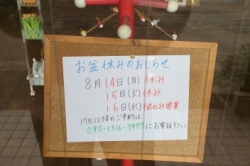 お盆休みのおしらせ
8月14日(月)休み
15日(火)休み
16日(水)昼のみ営業
17日以降のご予約は
にお電話下さい